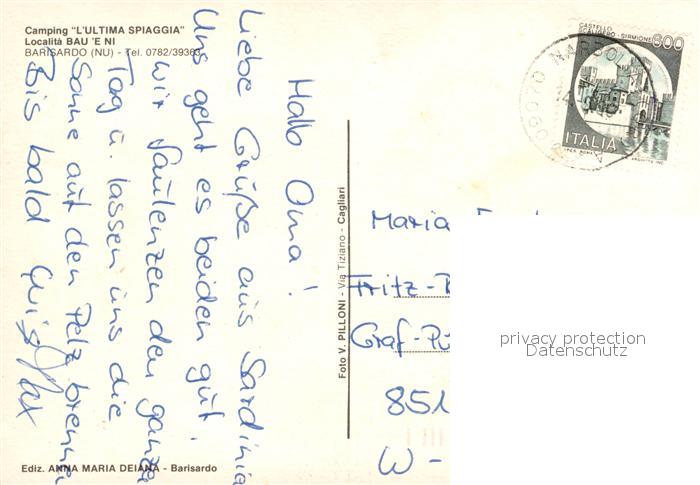 Camping "L'ULTIMA SPIAGGIA"
Località BAU 'E NI
BARISARDO (NU) - Tel. 0782/39363
Hallo Oma!
Liebe Grüße aus Sardinia
Uns geht es beiden gut.
Wir faulenzen den ganze
Tag u. lassen uns die
Sonne auf den Pelz brenne
Bis bald
Ediz. ANNA MARIA DEIANA - Barisardo
Foto V. PILLONI - Via Tiziano - Cagliari
CASTELLO
SCALIGERO - SIRMIONE
600
ITALIA
Maria
Fritz-
Graf-Pü
851
W-
privacy protection
Datenschutz